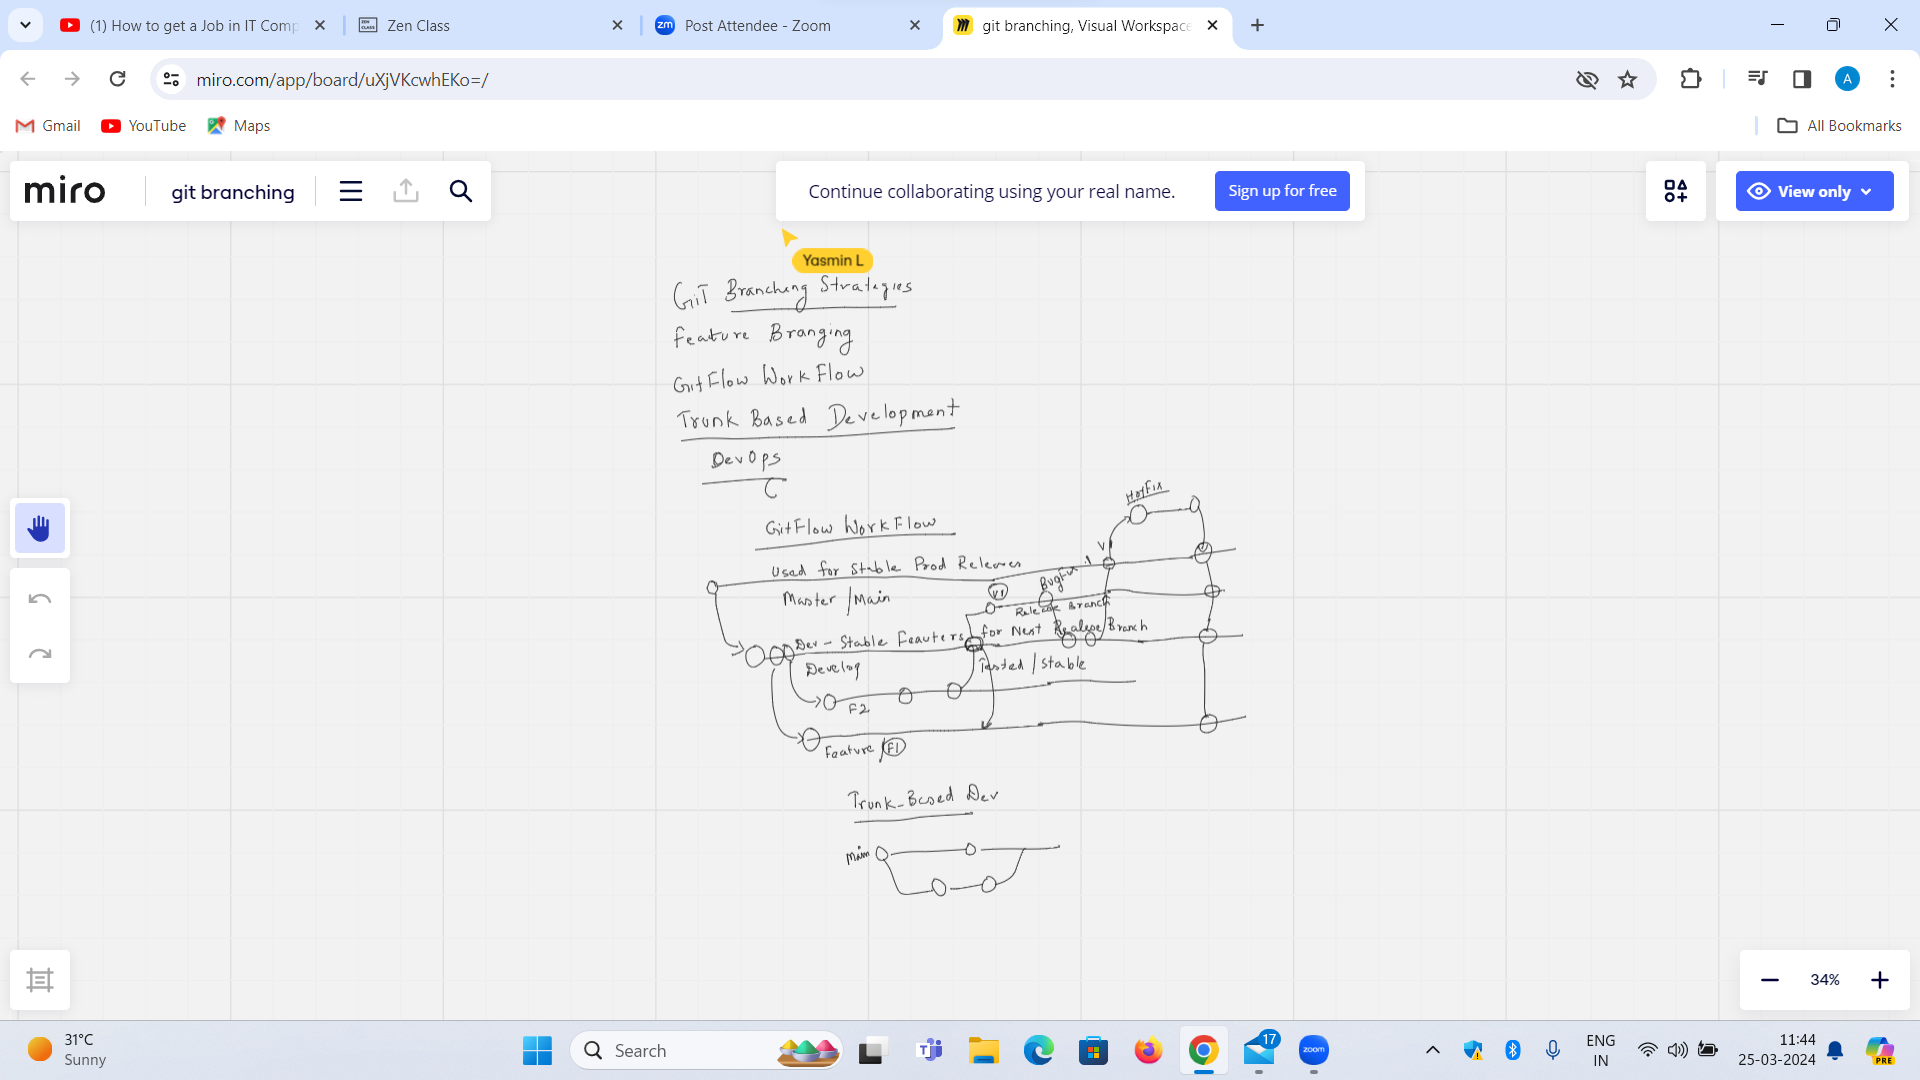 (1) How to get a Job in IT Comp
Zen Class
Post Attendee - Zoom
git branching, Visual Workspace
miro.com/app/board/uXjVKcwhEKo=/
A
Gmail
YouTube
Maps
All Bookmarks
miro
git branching
Continue collaborating using your real name.
Sign up for free
View only
Yasmin L
GiT Branching Strategies
Feature Branging
GitFlow WorkFlow
Trunk Based Development
DevOps
C
HotFix
GitFlow WorkFlow
Used for Stable Prod Releases
V1
BugFix
Master/Main
Release Branch
Dev - Stable Feauters for Next Realese Branch
Develop
Tested/Stable
F2
Feature/F1
Trunk-Based Dev
Main
34%
31°C
Sunny
Search
17
zoom
ENG
IN
11:44
25-03-2024
PRE